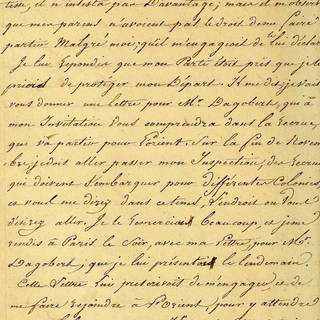 tesse, il n'insista pas Davantage; mais il m'observa
que mes parent n'avoient pas le droit de me faire
partir Malgré moi; qu'il m'engageoit de le lui déclar
Je lui Repondis que mon Parti étoit pris que je le
priois de protéger mon Départ. Il me dit; je vais
vous donner une lettre pour Mr. Dagobert, qui à
mon Invitation Vous comprendra dans la Recrue
qui va partir pour l'orient. Sur la fin de Novem
bre, je dois aller passer mon Inspection, des Recrues
qui doivent S'embarquer pour différentes Colonies,
et vous me direz dans ce tems, l'endroit ou vous
désirez aller. Je le Remerciais Beaucoup, et je me
rendis à Paris le Soir, avec ma Lettre, pour Mr.
Dagobert, que je lui présentai le lendemain.
Cette Lettre lui prescrivoit de m'engager, et de
me faire Rejoindre à L'Orient, pour y attendre